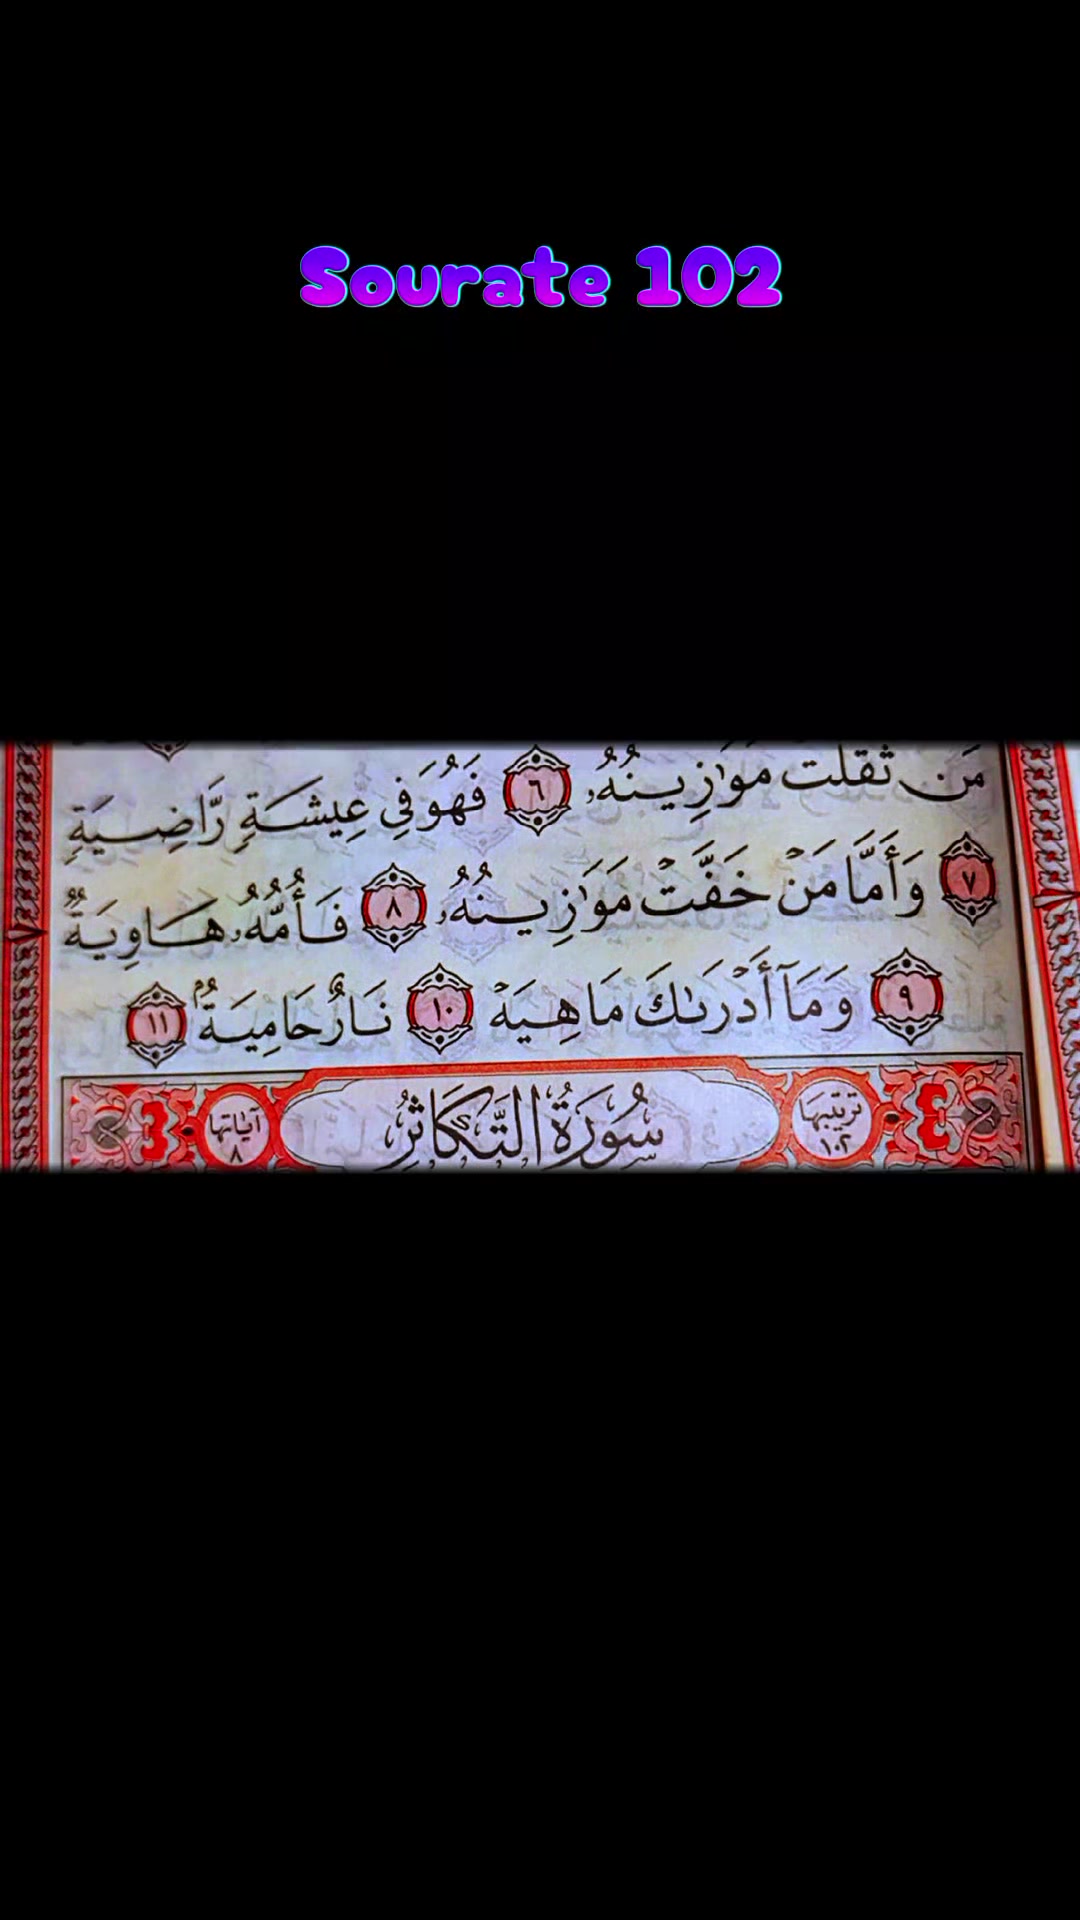 Sourate 102
مَن ثَقُلَتْ مَوَٰزِينُهُۥ ٦ فَهُوَ فِى عِيشَةٍ رَّاضِيَةٍ
٧ وَأَمَّا مَنْ خَفَّتْ مَوَٰزِينُهُۥ ٨ فَأُمُّهُۥ هَاوِيَةٌ
٩ وَمَآ أَدْرَىٰكَ مَا هِيَهْ ١٠ نَارٌ حَامِيَةٌۢ ١١
ترتيبها ١٠٢ سُورَةُ التَّكَاثُرِ آياتها ٨